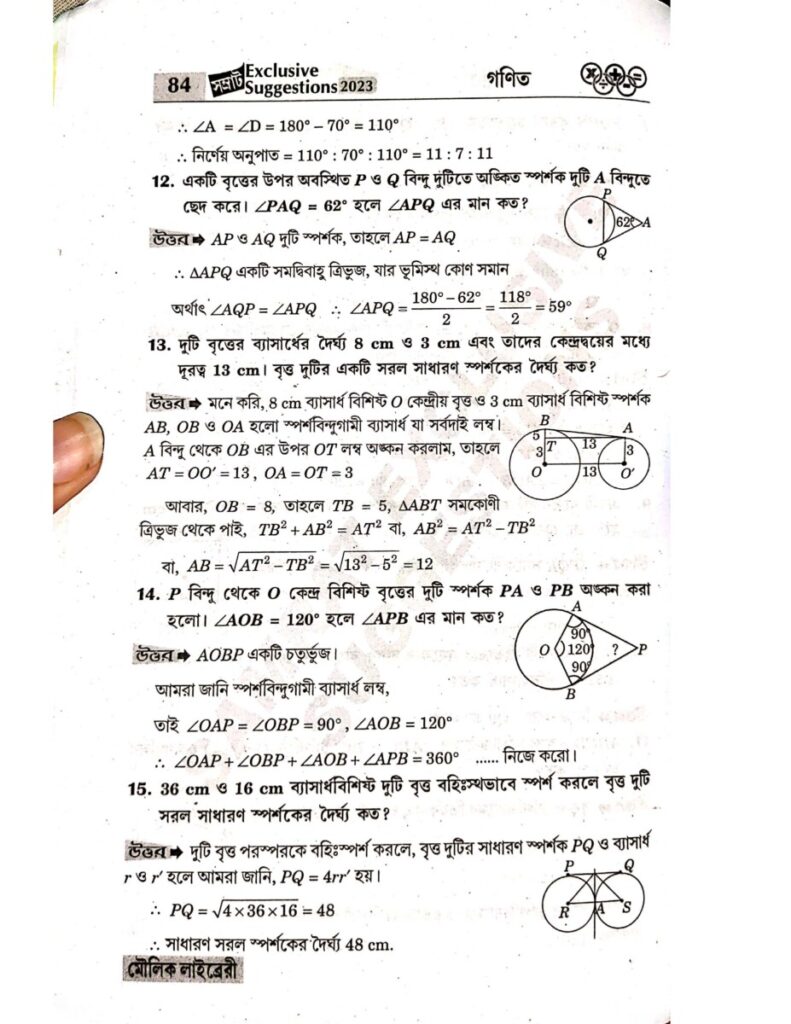 84 সম্রাট Exclusive Suggestions 2023 গণিত
∴ ∠A = ∠D = 180° – 70° = 110°
∴ নির্ণেয় অনুপাত = 110° : 70° : 110° = 11 : 7 : 11
12. একটি বৃত্তের উপর অবস্থিত P ও Q বিন্দু দুটিতে অঙ্কিত স্পর্শক দুটি A বিন্দুতে
ছেদ করে। ∠PAQ = 62° হলে ∠APQ এর মান কত?
P
62°
A
Q
উত্তর ➡ AP ও AQ দুটি স্পর্শক, তাহলে AP = AQ
∴ ΔAPQ একটি সমদ্বিবাহু ত্রিভুজ, যার ভূমিস্থ কোণ সমান
অর্থাৎ ∠AQP = ∠APQ ∴ ∠APQ = (180° – 62°)/2 = 118°/2 = 59°
13. দুটি বৃত্তের ব্যাসার্ধের দৈর্ঘ্য 8 cm ও 3 cm এবং তাদের কেন্দ্রদ্বয়ের মধ্যে
দূরত্ব 13 cm। বৃত্ত দুটির একটি সরল সাধারণ স্পর্শকের দৈর্ঘ্য কত?
উত্তর ➡ মনে করি, 8 cm ব্যাসার্ধ বিশিষ্ট O কেন্দ্রীয় বৃত্ত ও 3 cm ব্যাসার্ধ বিশিষ্ট স্পর্শক
AB, OB ও OA হলো স্পর্শবিন্দুগামী ব্যাসার্ধ যা সর্বদাই লম্ব।
A বিন্দু থেকে OB এর উপর OT লম্ব অঙ্কন করলাম, তাহলে
AT = OO′ = 13 , OA = OT = 3
B
A
5
13
3
T
3
O
13
O′
আবার, OB = 8, তাহলে TB = 5, ΔABT সমকোণী
ত্রিভুজ থেকে পাই, TB² + AB² = AT² বা, AB² = AT² – TB²
বা, AB = √(AT² – TB²) = √(13² – 5²) = 12
14. P বিন্দু থেকে O কেন্দ্র বিশিষ্ট বৃত্তের দুটি স্পর্শক PA ও PB অঙ্কন করা
হলো। ∠AOB = 120° হলে ∠APB এর মান কত?
A
90°
O
120°
?
P
90°
B
উত্তর ➡ AOBP একটি চতুর্ভুজ।
আমরা জানি স্পর্শবিন্দুগামী ব্যাসার্ধ লম্ব,
তাই ∠OAP = ∠OBP = 90° , ∠AOB = 120°
∴ ∠OAP + ∠OBP + ∠AOB + ∠APB = 360° ...... নিজে করো।
15. 36 cm ও 16 cm ব্যাসার্ধবিশিষ্ট দুটি বৃত্ত বহিঃস্থভাবে স্পর্শ করলে বৃত্ত দুটি
সরল সাধারণ স্পর্শকের দৈর্ঘ্য কত?
উত্তর ➡ দুটি বৃত্ত পরস্পরকে বহিঃস্পর্শ করলে, বৃত্ত দুটির সাধারণ স্পর্শক PQ ও ব্যাসার্ধ
r ও r′ হলে আমরা জানি, PQ = 4rr′ হয়।
∴ PQ = √(4 × 36 × 16) = 48
∴ সাধারণ সরল স্পর্শকের দৈর্ঘ্য 48 cm.
P
Q
R
A
S
মৌলিক লাইব্রেরী